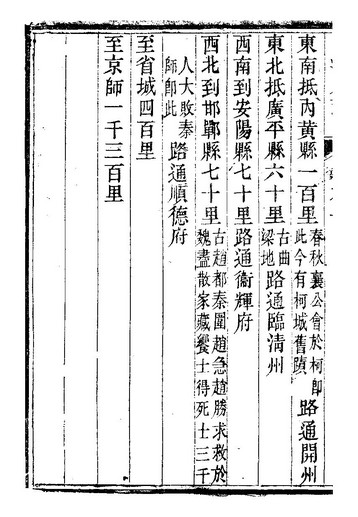 東南抵內黃縣一百里春秋襄公會於柯卽此今有柯城舊蹟路通開州
東北抵廣平縣六十里古曲梁地路通臨清州
西南到安陽縣七十里路通衞輝府
西北到邯鄲縣七十里古趙都秦圍趙急趙勝求救於魏盡散家藏饗士得死士三千
人大敗秦師卽此路通順德府
至省城四百里
至京師一千三百里